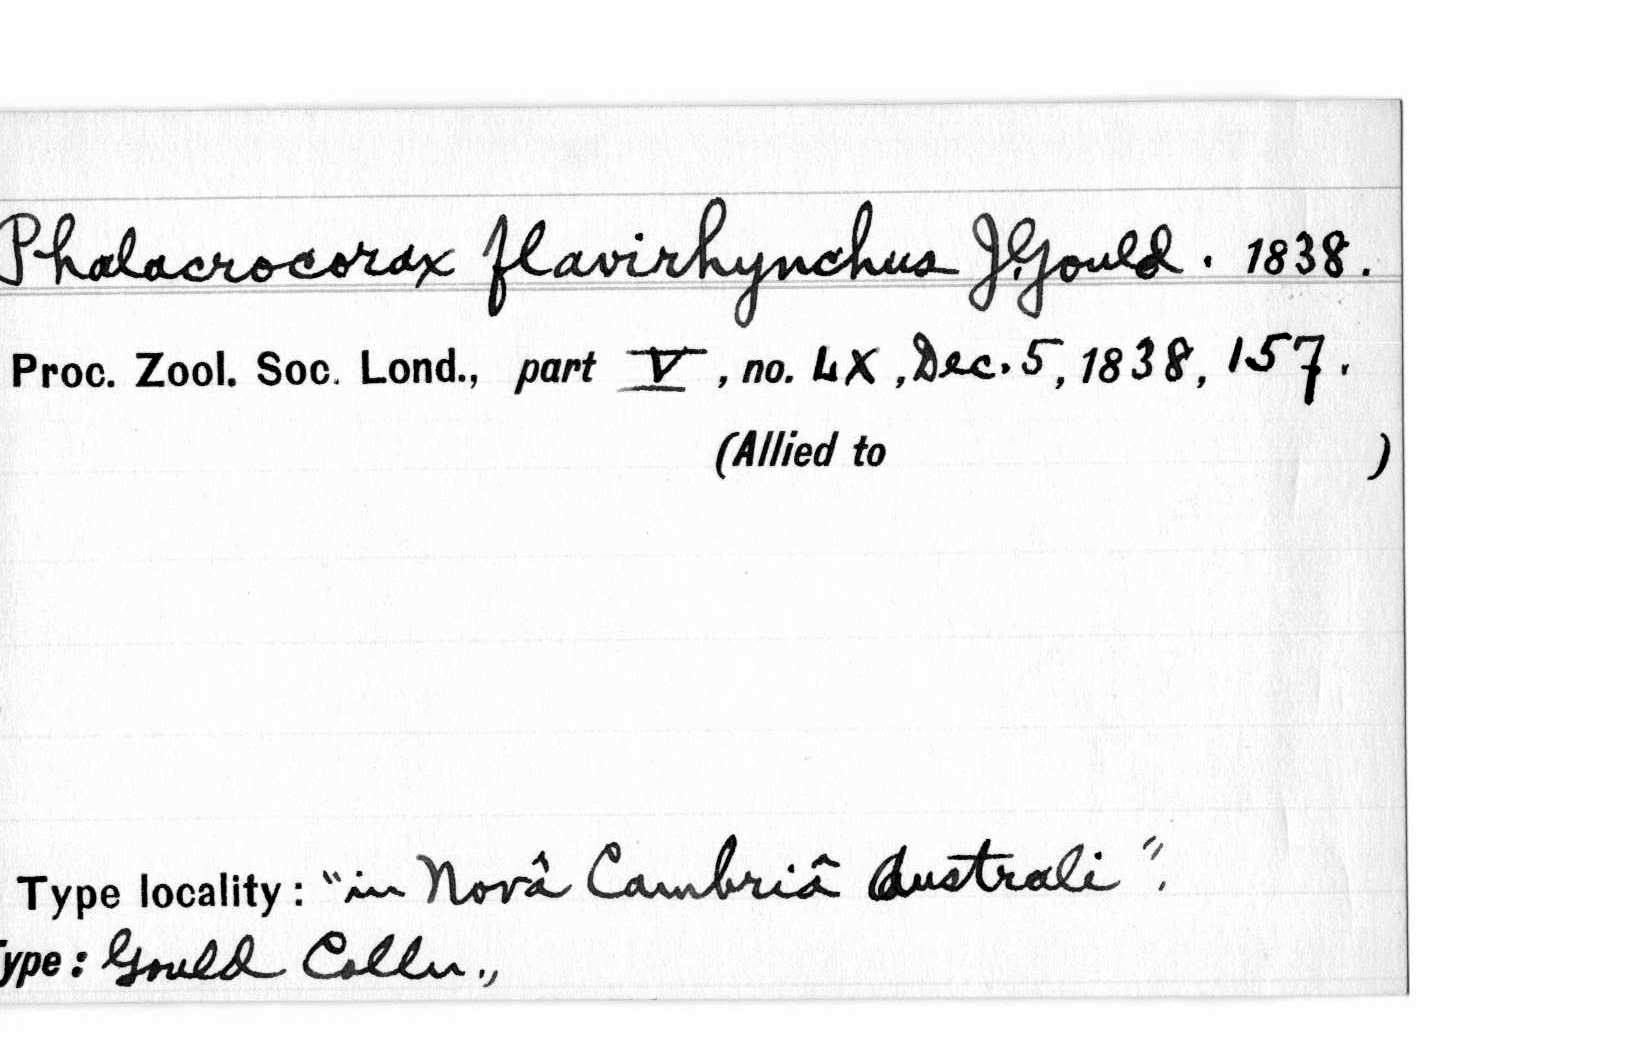 Phalacrocorax flavirhynchus J. Gould. 1838.
Proc. Zool. Soc. Lond., part V, no. LX, Dec. 5, 1838, 157.
(Allied to )
Type locality: "in Novâ Cambriâ Australi".
Type: Gould Colln.,